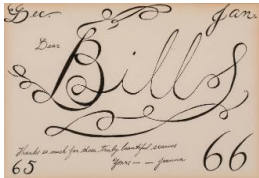 Dec. Jan.
Dear
Bills
Thanks so much for those truly beautiful
65 Yours — — Joanna 66